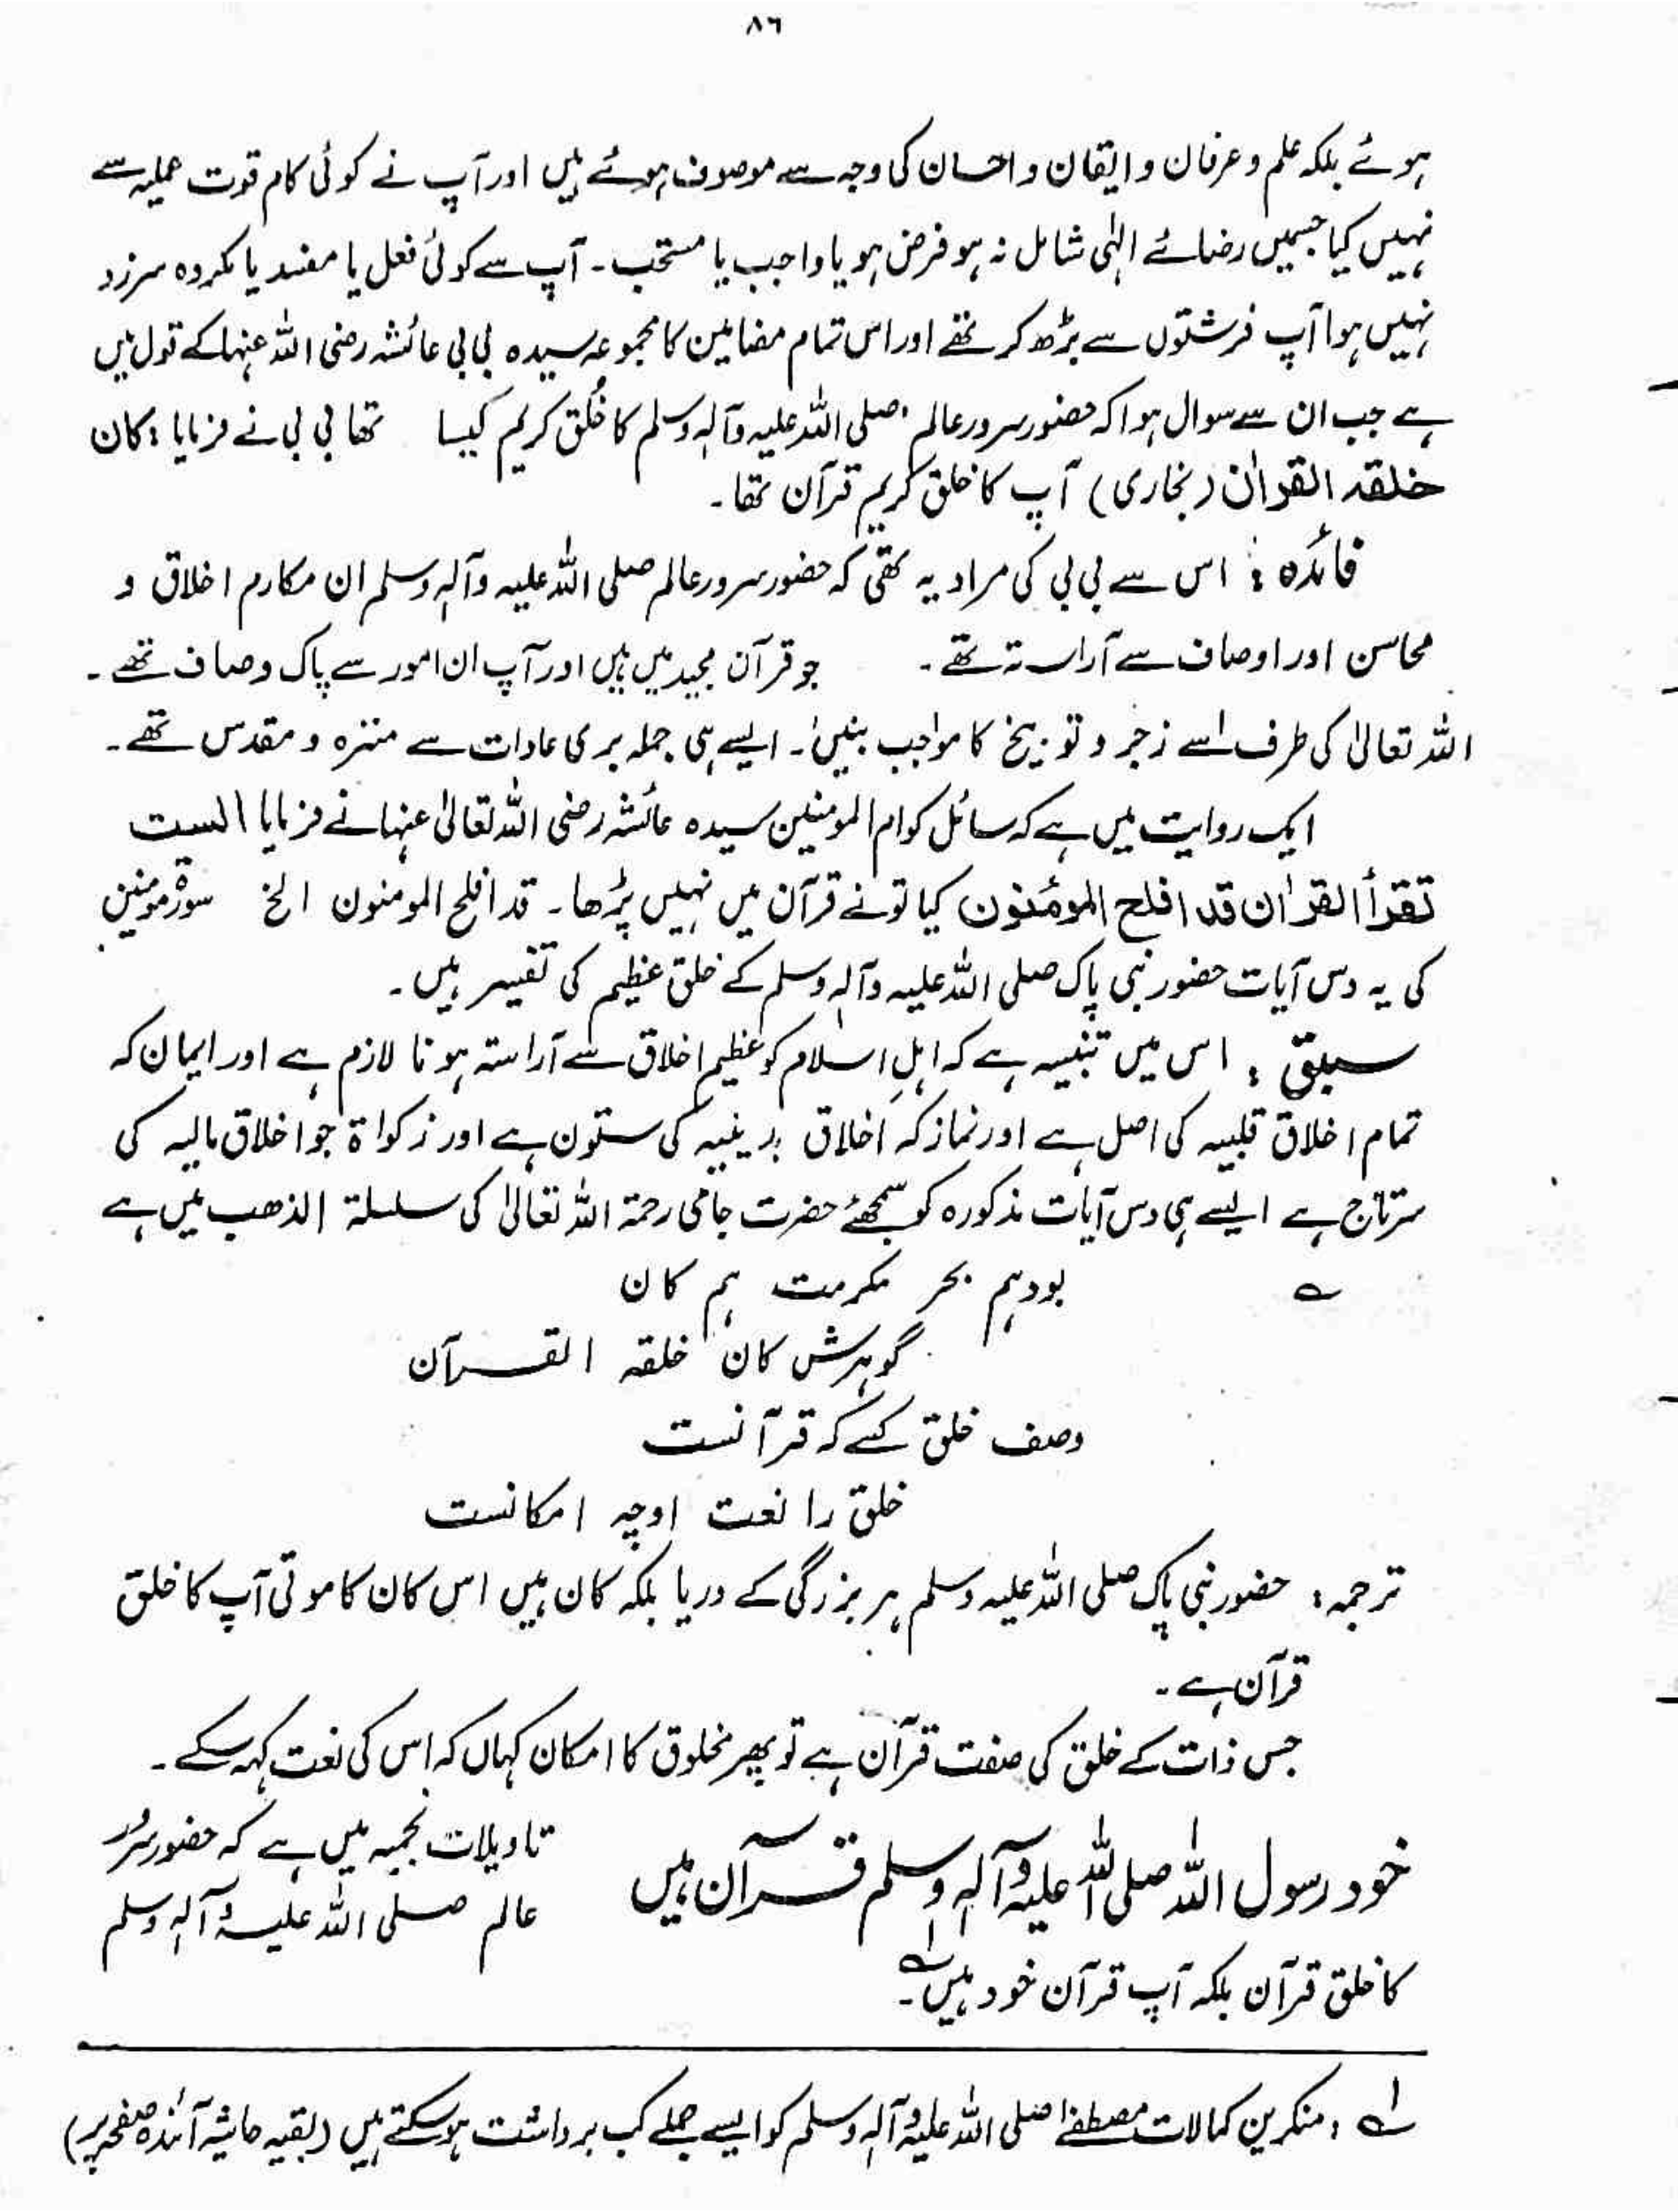 ٨٦
ہوئے بلکہ علم و عرفان و ایقان و احسان کی وجہ سے موصوف ہوئے ہیں اور آپ نے کوئی کام قوت عملیہ سے
نہیں کیا جسمیں رضائے الہٰی شامل نہ ہو فرض ہو یا واجب یا مستحب۔ آپ سے کوئی فعل یا مفسد یا مکروہ سرزد
نہیں ہوا آپ فرشتوں سے بڑھ کر تھے اور اس تمام مضامین کا مجموعہ سیدہ بی بی عائشہ رضی اللہ عنہا کے قول میں
ہے جب ان سے سوال ہوا کہ حضور سرور عالم صلی اللہ علیہ وآلہ وسلم کا خُلق کریم کیسا تھا بی بی نے فرمایا: کان
خلقہ القرآن (بخاری) آپ کا خلق کریم قرآن تھا۔
فائدہ: اس سے بی بی کی مراد یہ تھی کہ حضور سرور عالم صلی اللہ علیہ وآلہ وسلم ان مکارم اخلاق و
محاسن اور اوصاف سے آراستہ تھے۔ جو قرآن مجید میں ہیں اور آپ ان امور سے پاک و صاف تھے۔
اللہ تعالیٰ کی طرف سے زجر و توبیخ کا مواجب بنیں۔ ایسے ہی جملہ بری عادات سے منزہ و مقدس تھے۔
ایک روایت میں ہے کہ سائل کو ام المومنین سیدہ عائشہ رضی اللہ تعالیٰ عنہا نے فرمایا الست
تقرأ القرٰان قد افلح المؤمنون کیا تو نے قرآن میں نہیں پڑھا۔ قد افلح المومنون الخ سورۃ مومنین
کی یہ دس آیات حضور نبی پاک صلی اللہ علیہ وآلہ وسلم کے خلق عظیم کی تفسیر ہیں۔
سبق: اس میں تنبیہ ہے کہ اہلِ اسلام کو عظیم اخلاق سے آراستہ ہونا لازم ہے اور ایمان کہ
تمام اخلاق قلبیہ کی اصل ہے اور نماز کہ اخلاق بدینیہ کی ستون ہے اور زکواۃ جو اخلاق مالیہ کی
سرتاج ہے ایسے ہی دس آیات مذکورہ کو سمجھئے حضرت جامی رحمۃ اللہ تعالیٰ کی سلسلۃ الذھب میں ہے
ے بود ہم بحر مکرمت ہم کان
گوہرش کان خلقہ القرآن
وصف خلق کسے کہ قرآنست
خلق را نعت اوچہ امکانست
ترجمہ: حضور نبی پاک صلی اللہ علیہ وسلم ہر بزرگی کے دریا بلکہ کان ہیں اس کان کا موتی آپ کا خلق
قرآن ہے۔
جس ذات کے خلق کی صفت قرآن ہے تو پھر مخلوق کا امکان کہاں کہ اس کی نعت کہہ سکے۔
خود رسول اللہ صلی اللہ علیہ وآلہ وسلم قرآن ہیں
تاویلات نجمیہ میں ہے کہ حضور سرور
عالم صلی اللہ علیہ وآلہ وسلم
کا خلق قرآن بلکہ آپ قرآن خود ہیں۔ لہ
لہ: منکرین کمالات مصطفےٰ صلی اللہ علیہ وآلہ وسلم کو ایسے جملے کب برداشت ہو سکتے ہیں (بقیہ حاشیہ آئندہ صفحہ پر)